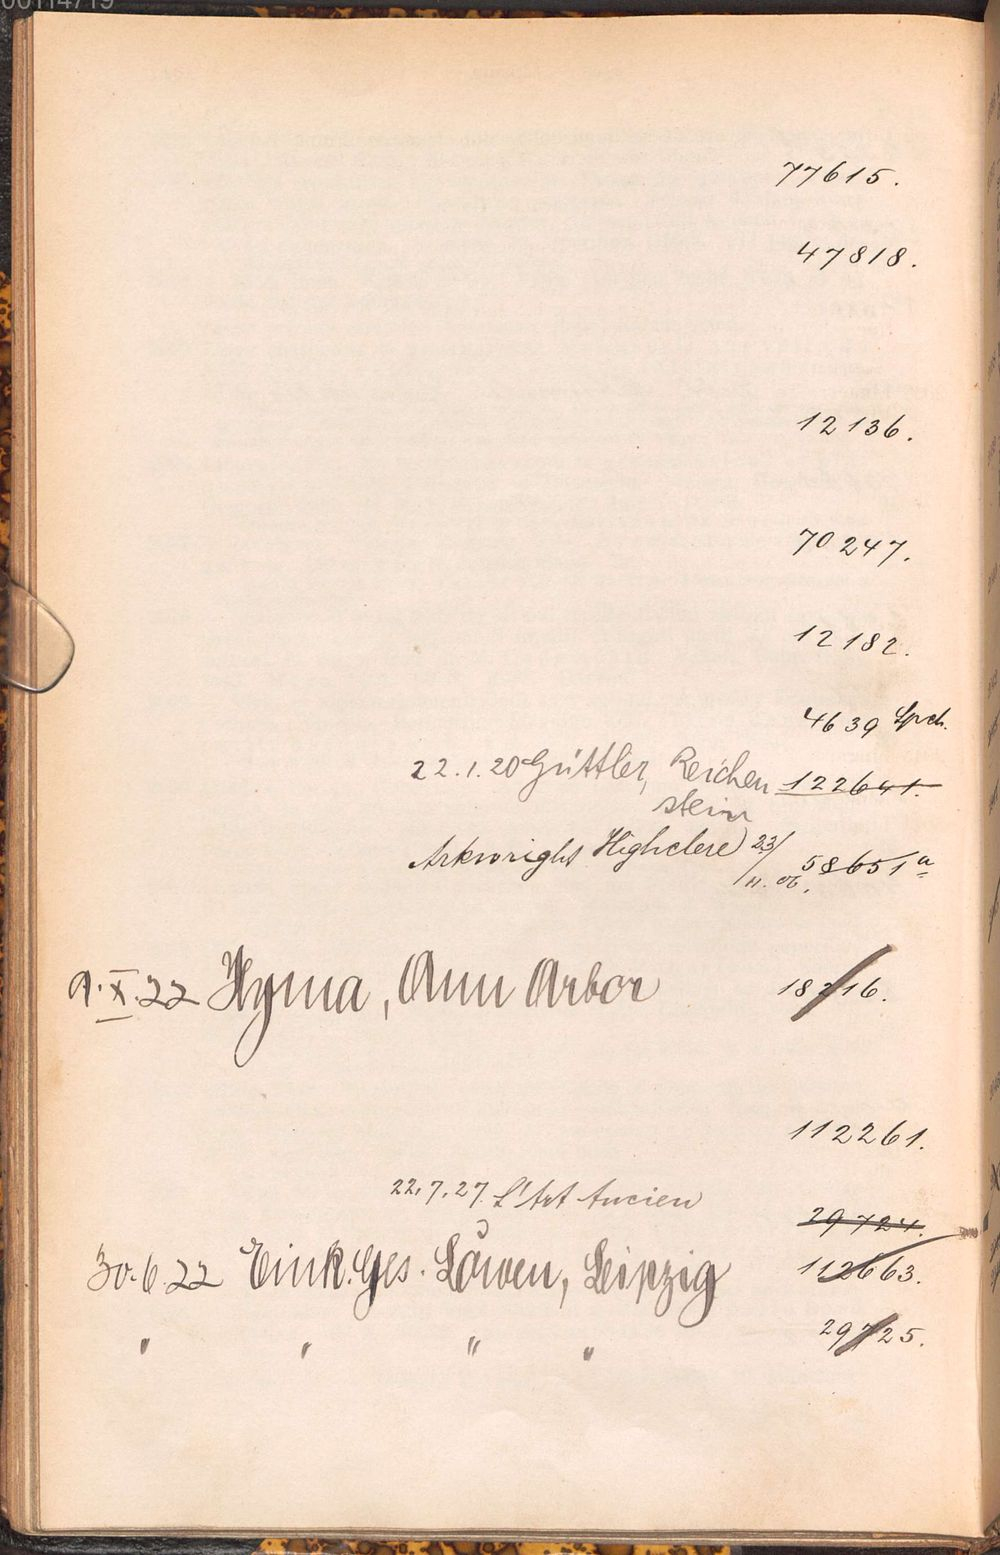 00114719
77615.
47818.
12136.
70247.
12182.
4639 Spch.
22.1.20 Güttler, Reichen 122641.
stein
Arkwright Highclere) 23/
/11. 06. 58651 a
9.X.22 Hyma, Ann Arbor 18716.
112261.
22.7.27. L'Art Ancien
29724.
30.6.22 Eink. Ges. Löwen, Leipzig 112663.
" " " " 29725.